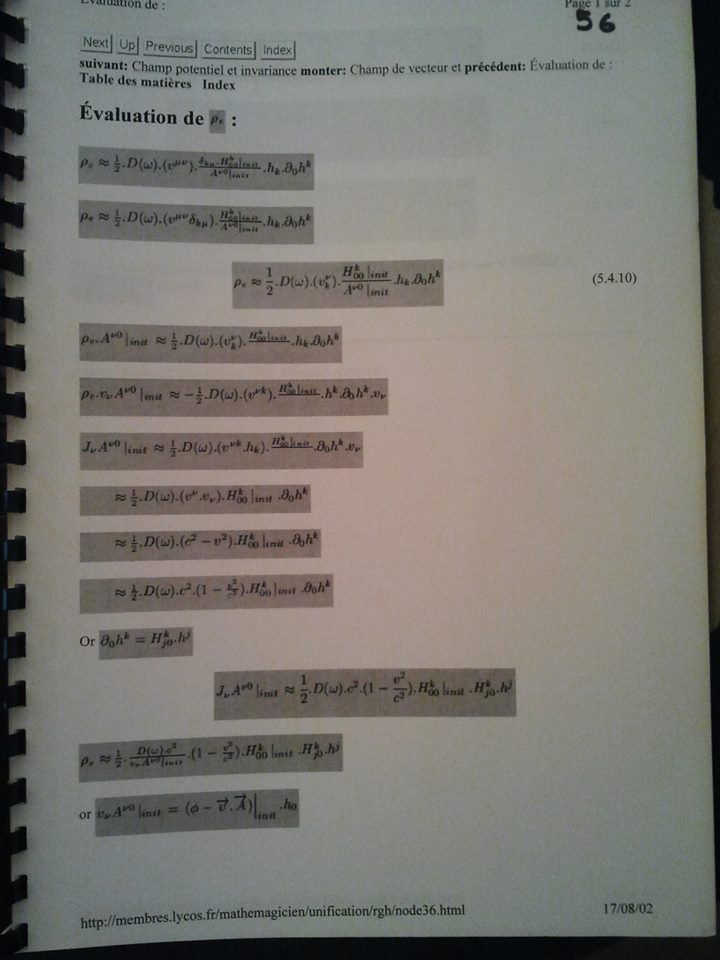 Évaluation de :
Page 1 sur 2
56
Next Up Previous Contents Index
suivant: Champ potentiel et invariance monter: Champ de vecteur et précédent: Évaluation de :
Table des matières Index
Évaluation de ρₑ :
ρₑ ≈ ½.D(ω).(v^{μν}).\frac{δ_{kμ}.H^k_{00}|_{init}}{A^{ν0}|_{init}}.h_k.∂₀h^k
ρₑ ≈ ½.D(ω).(v^{μν}δ_{kμ}).\frac{H^k_{00}|_{init}}{A^{ν0}|_{init}}.h_k.∂₀h^k
ρₑ ≈ \frac{1}{2}.D(ω).(v^ν_k).\frac{H^k_{00}|_{init}}{A^{ν0}|_{init}}.h_k.∂₀h^k (5.4.10)
ρₑ.A^{ν0}|_{init} ≈ ½.D(ω).(v^ν_k).\frac{H^k_{00}|_{init}}{}.h_k.∂₀h^k
ρₑ.v_νA^{ν0}|_{init} ≈ −½.D(ω).(v^{νk}).\frac{H^k_{00}|_{init}}{}.h^k.∂₀h^k.v_ν
J_νA^{ν0}|_{init} ≈ ½.D(ω).(v^{νk}.h_k).\frac{H^k_{00}|_{init}}{}.∂₀h^k.v_ν
≈ ½.D(ω).(v^ν.v_ν).H^k_{00}|_{init}.∂₀h^k
≈ ½.D(ω).(c² − v²).H^k_{00}|_{init}.∂₀h^k
≈ ½.D(ω).c².(1 − \frac{v²}{c²}).H^k_{00}|_{init}.∂₀h^k
Or ∂₀h^k = H^k_{j0}.h^j
J_νA^{ν0}|_{init} ≈ \frac{1}{2}.D(ω).c².(1 − \frac{v²}{c²}).H^k_{00}|_{init}.H^k_{j0}.h^j
ρₑ ≈ ½.\frac{D(ω).c²}{v_νA^{ν0}|_{init}}.(1 − \frac{v²}{c²}).H^k_{00}|_{init}.H^k_{j0}.h^j
or v_νA^{ν0}|_{init} = (ϕ − \vec{v}.\vec{A})|_{init}.h₀
http://membres.lycos.fr/mathemagicien/unification/rgh/node36.html
17/08/02